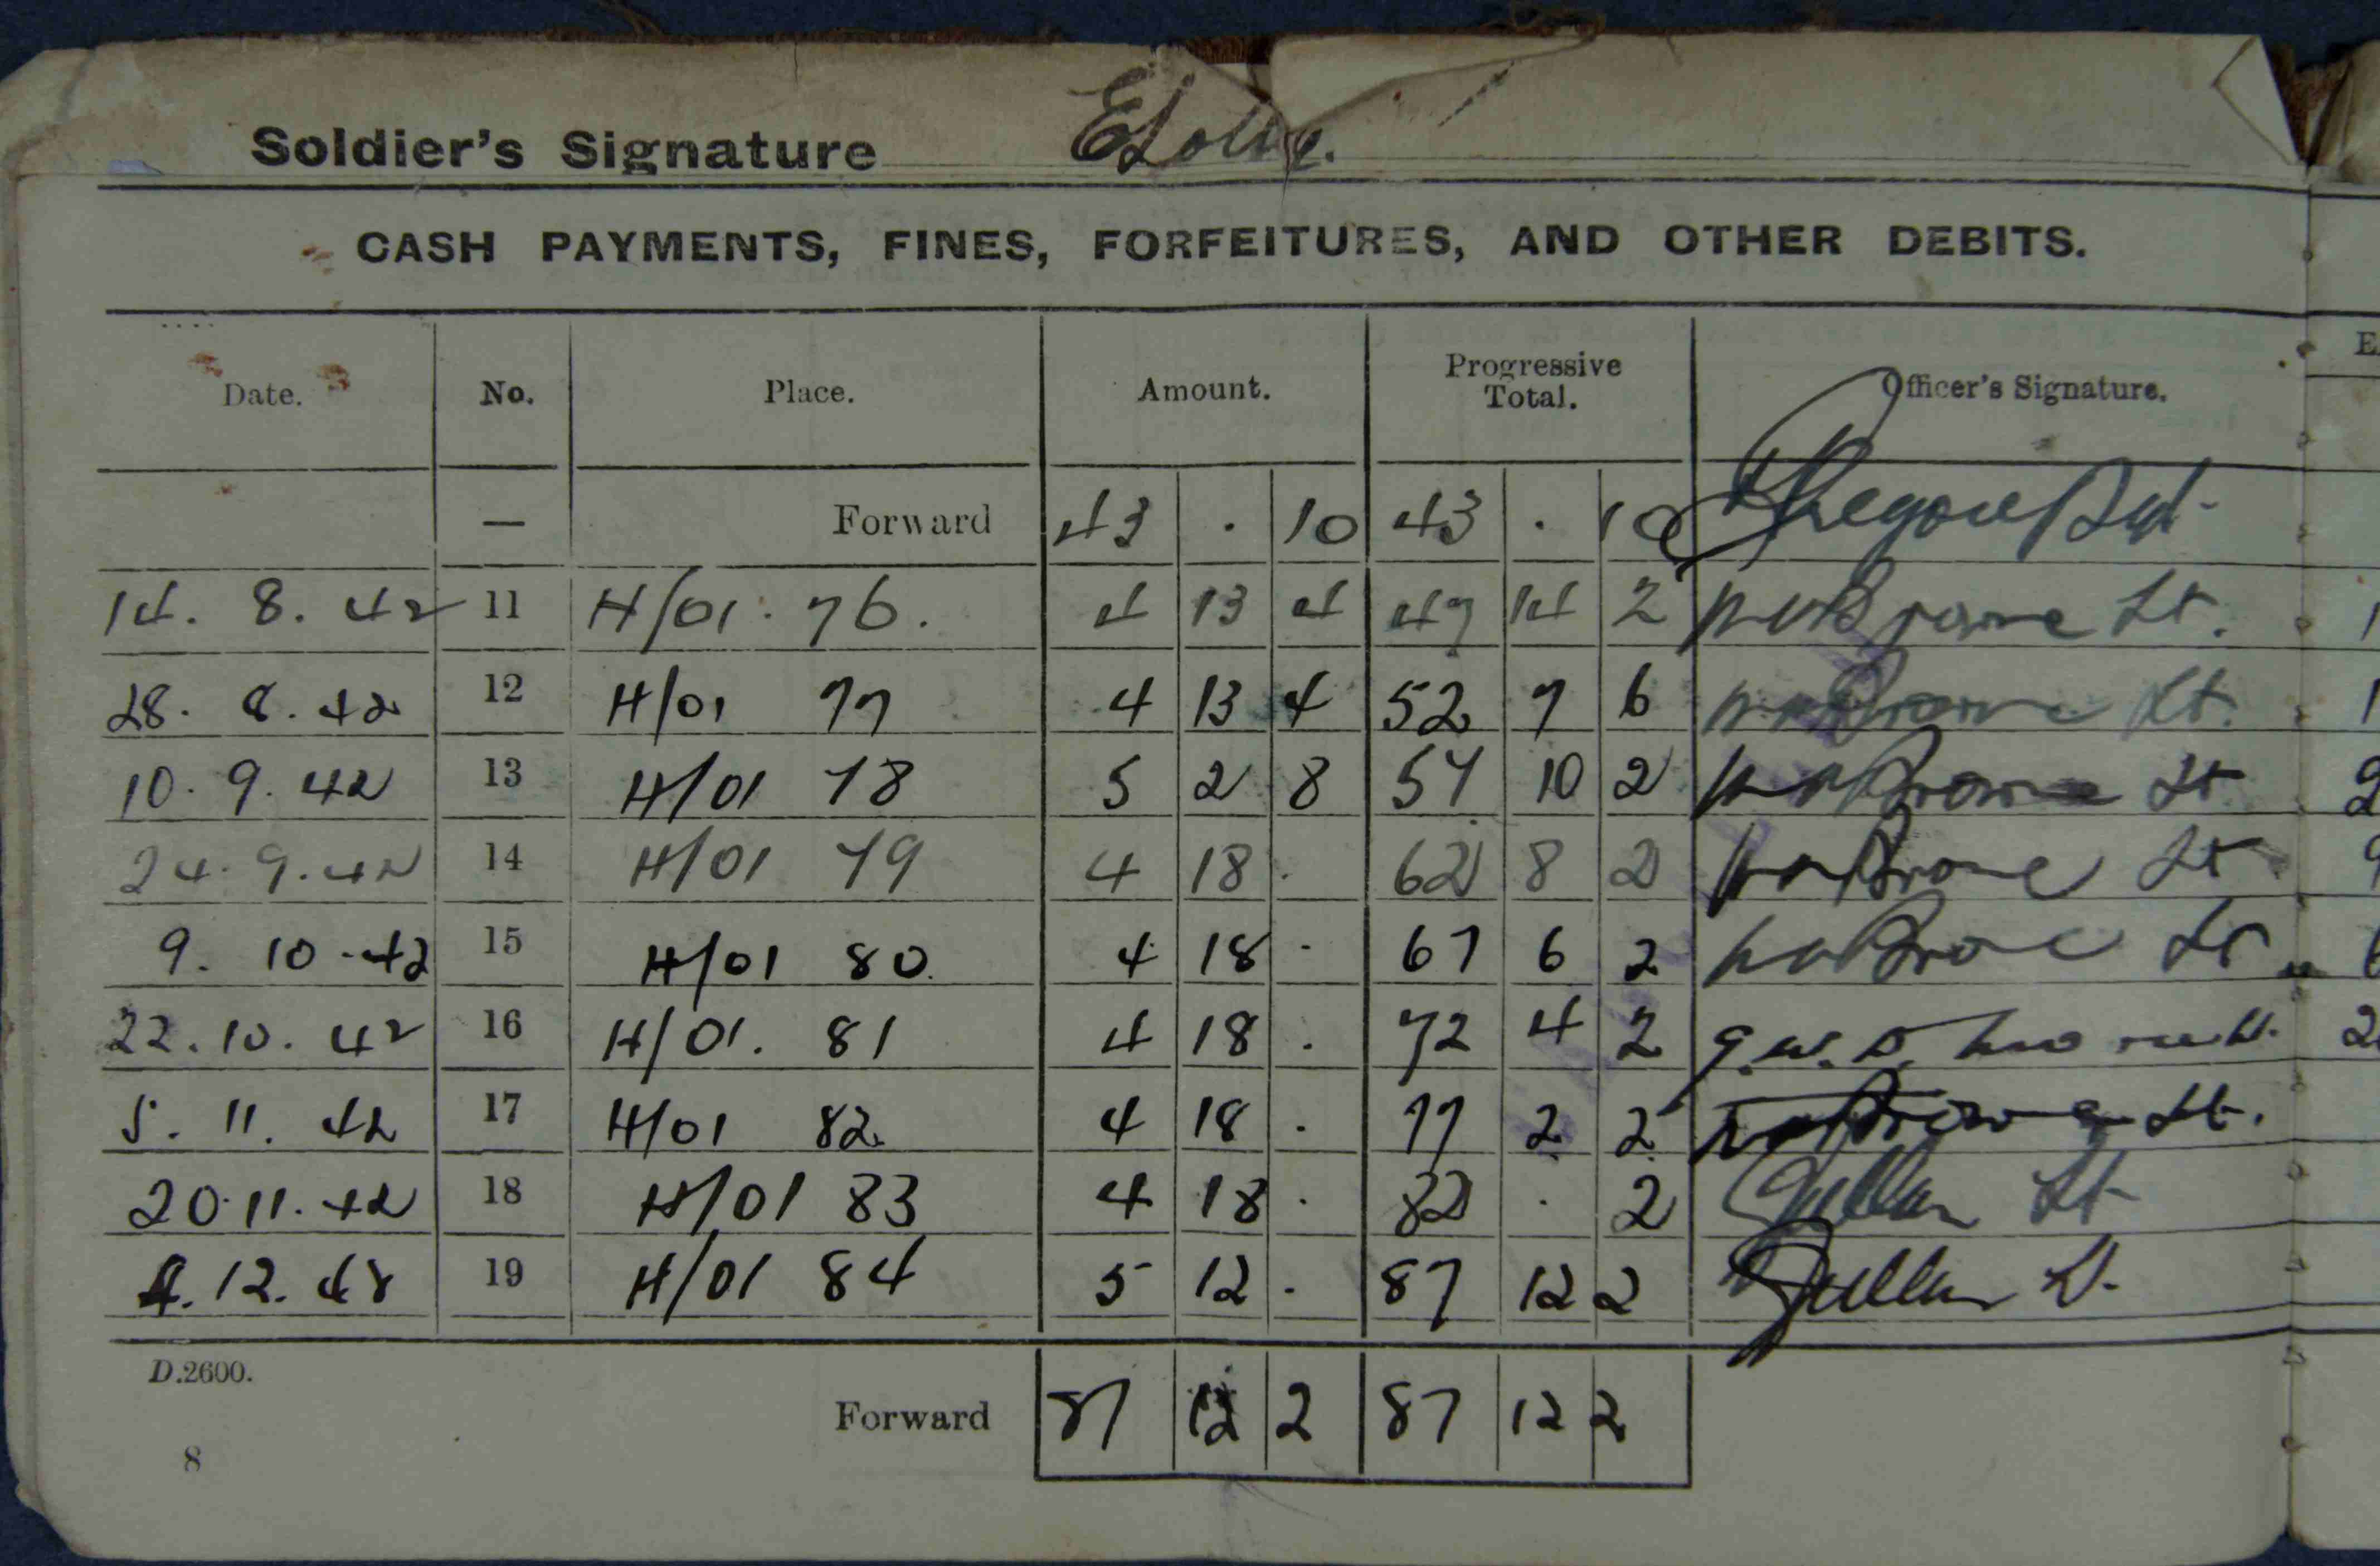 Soldier's Signature
CASH PAYMENTS, FINES, FORFEITURES, AND OTHER DEBITS.
Date. No. Place. Amount. Progressive Total. Officer's Signature.
— Forward 43 . 10 43 . 10
14. 8. 42 11 H/01. 76. 4 13 4 47 14 2 Lt.
28. 8. 42 12 H/01 77 4 13 4 52 7 6 Lt.
10. 9. 42 13 H/01 78 5 2 8 57 10 2 Lt
24. 9. 42 14 H/01 79 4 18 . 62 8 2 Lt
9. 10. 42 15 H/01 80. 4 18 . 67 6 2 Lt
22. 10. 42 16 H/01. 81 4 18 . 72 4 2
5. 11. 42 17 H/01 82. 4 18 . 77 2 2 Lt.
20. 11. 42 18 H/01 83 4 18 . 82 . 2 Lt
4. 12. 48 19 H/01 84 5 12 . 87 12 2 Lt.
D.2600.
Forward 87 12 2 87 12 2
8